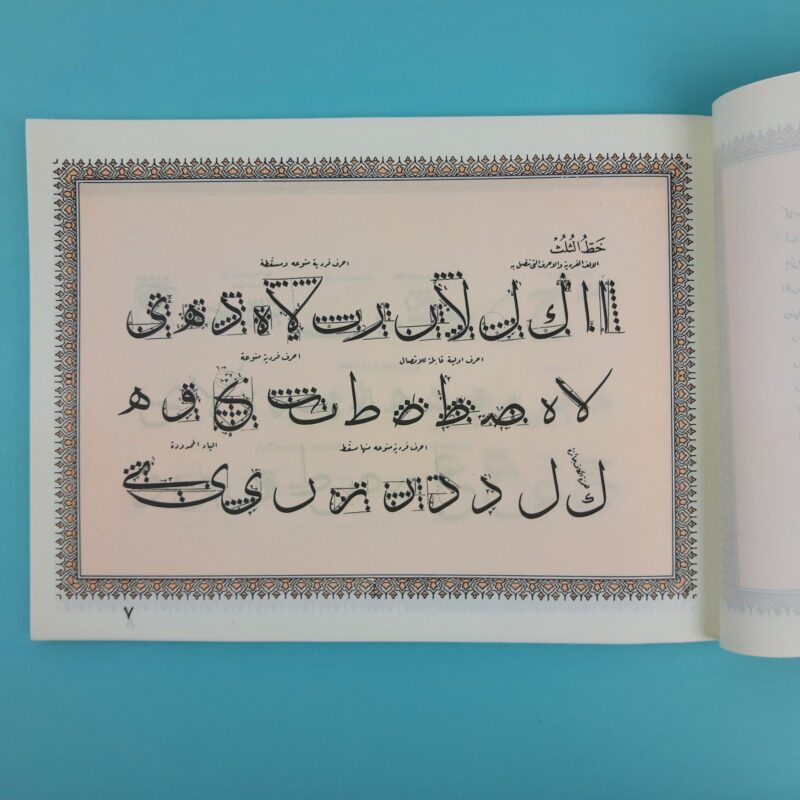 خَطّ الثُلُثْ
الالف الفردية والاحرف التي تتصل به
احرف فردية منوعه ومنقطة
ا ا ا ك ل لا ر ب لا ه د هـ ي
احرف اولية قابلة للاتصال
احرف فردية منوعة
لا ه ص ط ط ت ج و ه
احرف فردية منوعه منها منقط
الياء الممدودة
ك ل د د ن ر ر ي ي
٧